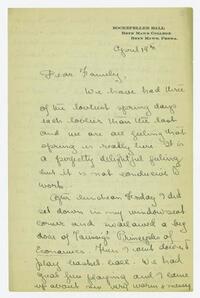 ROCKEFELLER HALL
BRYN MAWR COLLEGE
BRYN MAWR, PENNA.
April 19th
Dear Family,
We have had three
of the loveliest spring days
each lovelier than the last
and we are all feeling that
spring is really here. It is
a perfectly delightful feeling
but it is not conducive to
work.
After luncheon Friday I did
sit down in my window-seat
corner and read a big
dose of Taussig's Principles of
Economics. Then I went down &
played basket ball. We had
great fun playing and I came
up about six very warm &